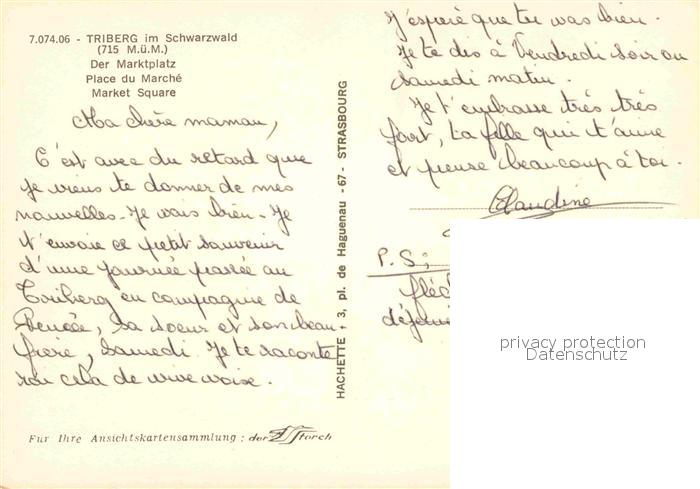 7.074.06 - TRIBERG im Schwarzwald
(715 M.ü.M.)
Der Marktplatz
Place du Marché
Market Square
Ma chère maman,
C'est avec du retard que
je viens te donner de mes
nouvelles. Je vais bien. Je
t'envoie ce petit souvenir
d'une journée passée au
Triberg en compagnie de
Renée, sa soeur et son beau
frère, samedi. Je te raconte
rai cela de vive voix.
Für Ihre Ansichtskartensammlung : der Storch
HACHETTE + 3, pl. de Haguenau -67- STRASBOURG
J'espère que tu vas bien.
Je te dis à Vendredi soir ou
samedi matin.
Je t'embrasse très très
fort, ta fille qui t'aime
et pense beaucoup à toi.
Claudine
P.S:
privacy protection
Datenschutz